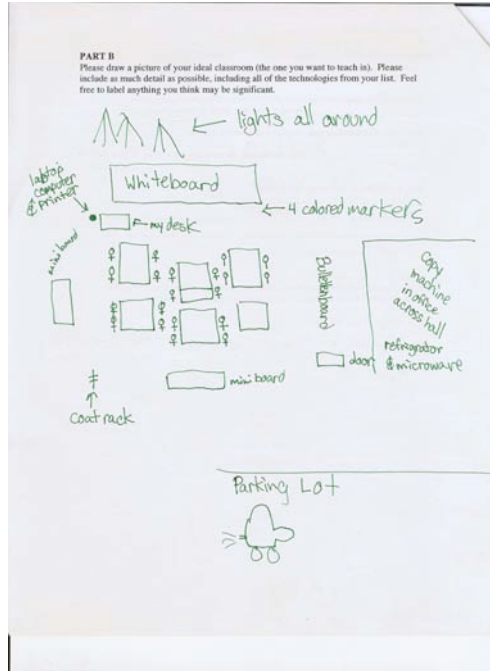 PART B
Please draw a picture of your ideal classroom (the one you want to teach in). Please
include as much detail as possible, including all of the technologies from your list. Feel
free to label anything you think may be significant.
lights all around
laptop
computer
& printer
Whiteboard
4 colored markers
my desk
mini board
Bulletenboard
Copy
machine
in office
across hall
refragrator
& microware
door
mini board
coat rack
Parking Lot